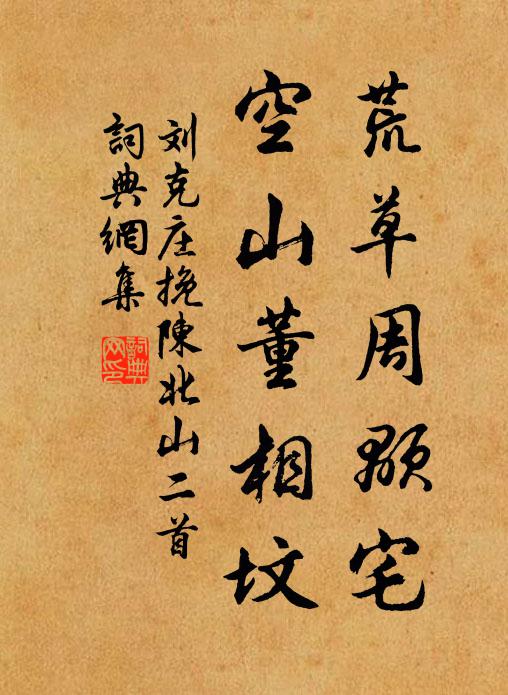 荒草周顒宅
空山董相坟
刘克庄挽陳北山二首
詞典網集
詞典
网印